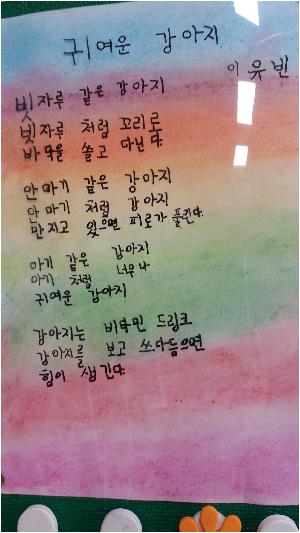 귀여운 강아지
이유빈
빗자루 같은 강아지
빗자루 처럼 꼬리로
바닥을 쓸고 다닌다.
안마기 같은 강아지
안마기 처럼 강아지
만지고 있으면 피로가 풀린다.
아기 같은 강아지
아기 처럼 너무나
귀여운 강아지
강아지는 비타민 드링크
강아지를 보고 쓰다듬으면
힘이 생긴다.